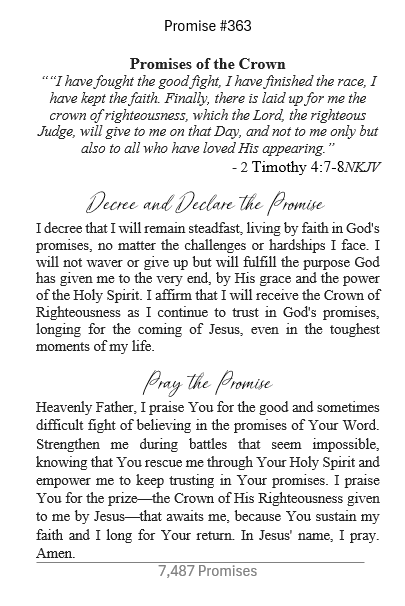 Promise #363
Promises of the Crown
““I have fought the good fight, I have finished the race, I
have kept the faith. Finally, there is laid up for me the
crown of righteousness, which the Lord, the righteous
Judge, will give to me on that Day, and not to me only but
also to all who have loved His appearing.”
- 2 Timothy 4:7-8NKJV
Decree and Declare the Promise
I decree that I will remain steadfast, living by faith in God's
promises, no matter the challenges or hardships I face. I
will not waver or give up but will fulfill the purpose God
has given me to the very end, by His grace and the power
of the Holy Spirit. I affirm that I will receive the Crown of
Righteousness as I continue to trust in God's promises,
longing for the coming of Jesus, even in the toughest
moments of my life.
Pray the Promise
Heavenly Father, I praise You for the good and sometimes
difficult fight of believing in the promises of Your Word.
Strengthen me during battles that seem impossible,
knowing that You rescue me through Your Holy Spirit and
empower me to keep trusting in Your promises. I praise
You for the prize—the Crown of His Righteousness given
to me by Jesus—that awaits me, because You sustain my
faith and I long for Your return. In Jesus' name, I pray.
Amen.
7,487 Promises